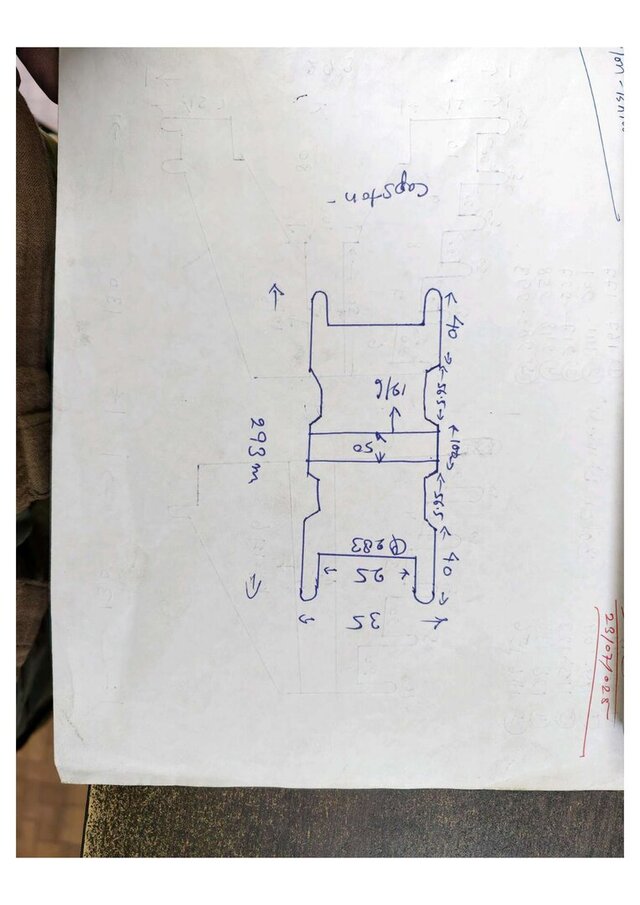 Capston -
40
56.5
102
56.5
40
12/6
50
Φ283
25
35
293 m
23/07/025